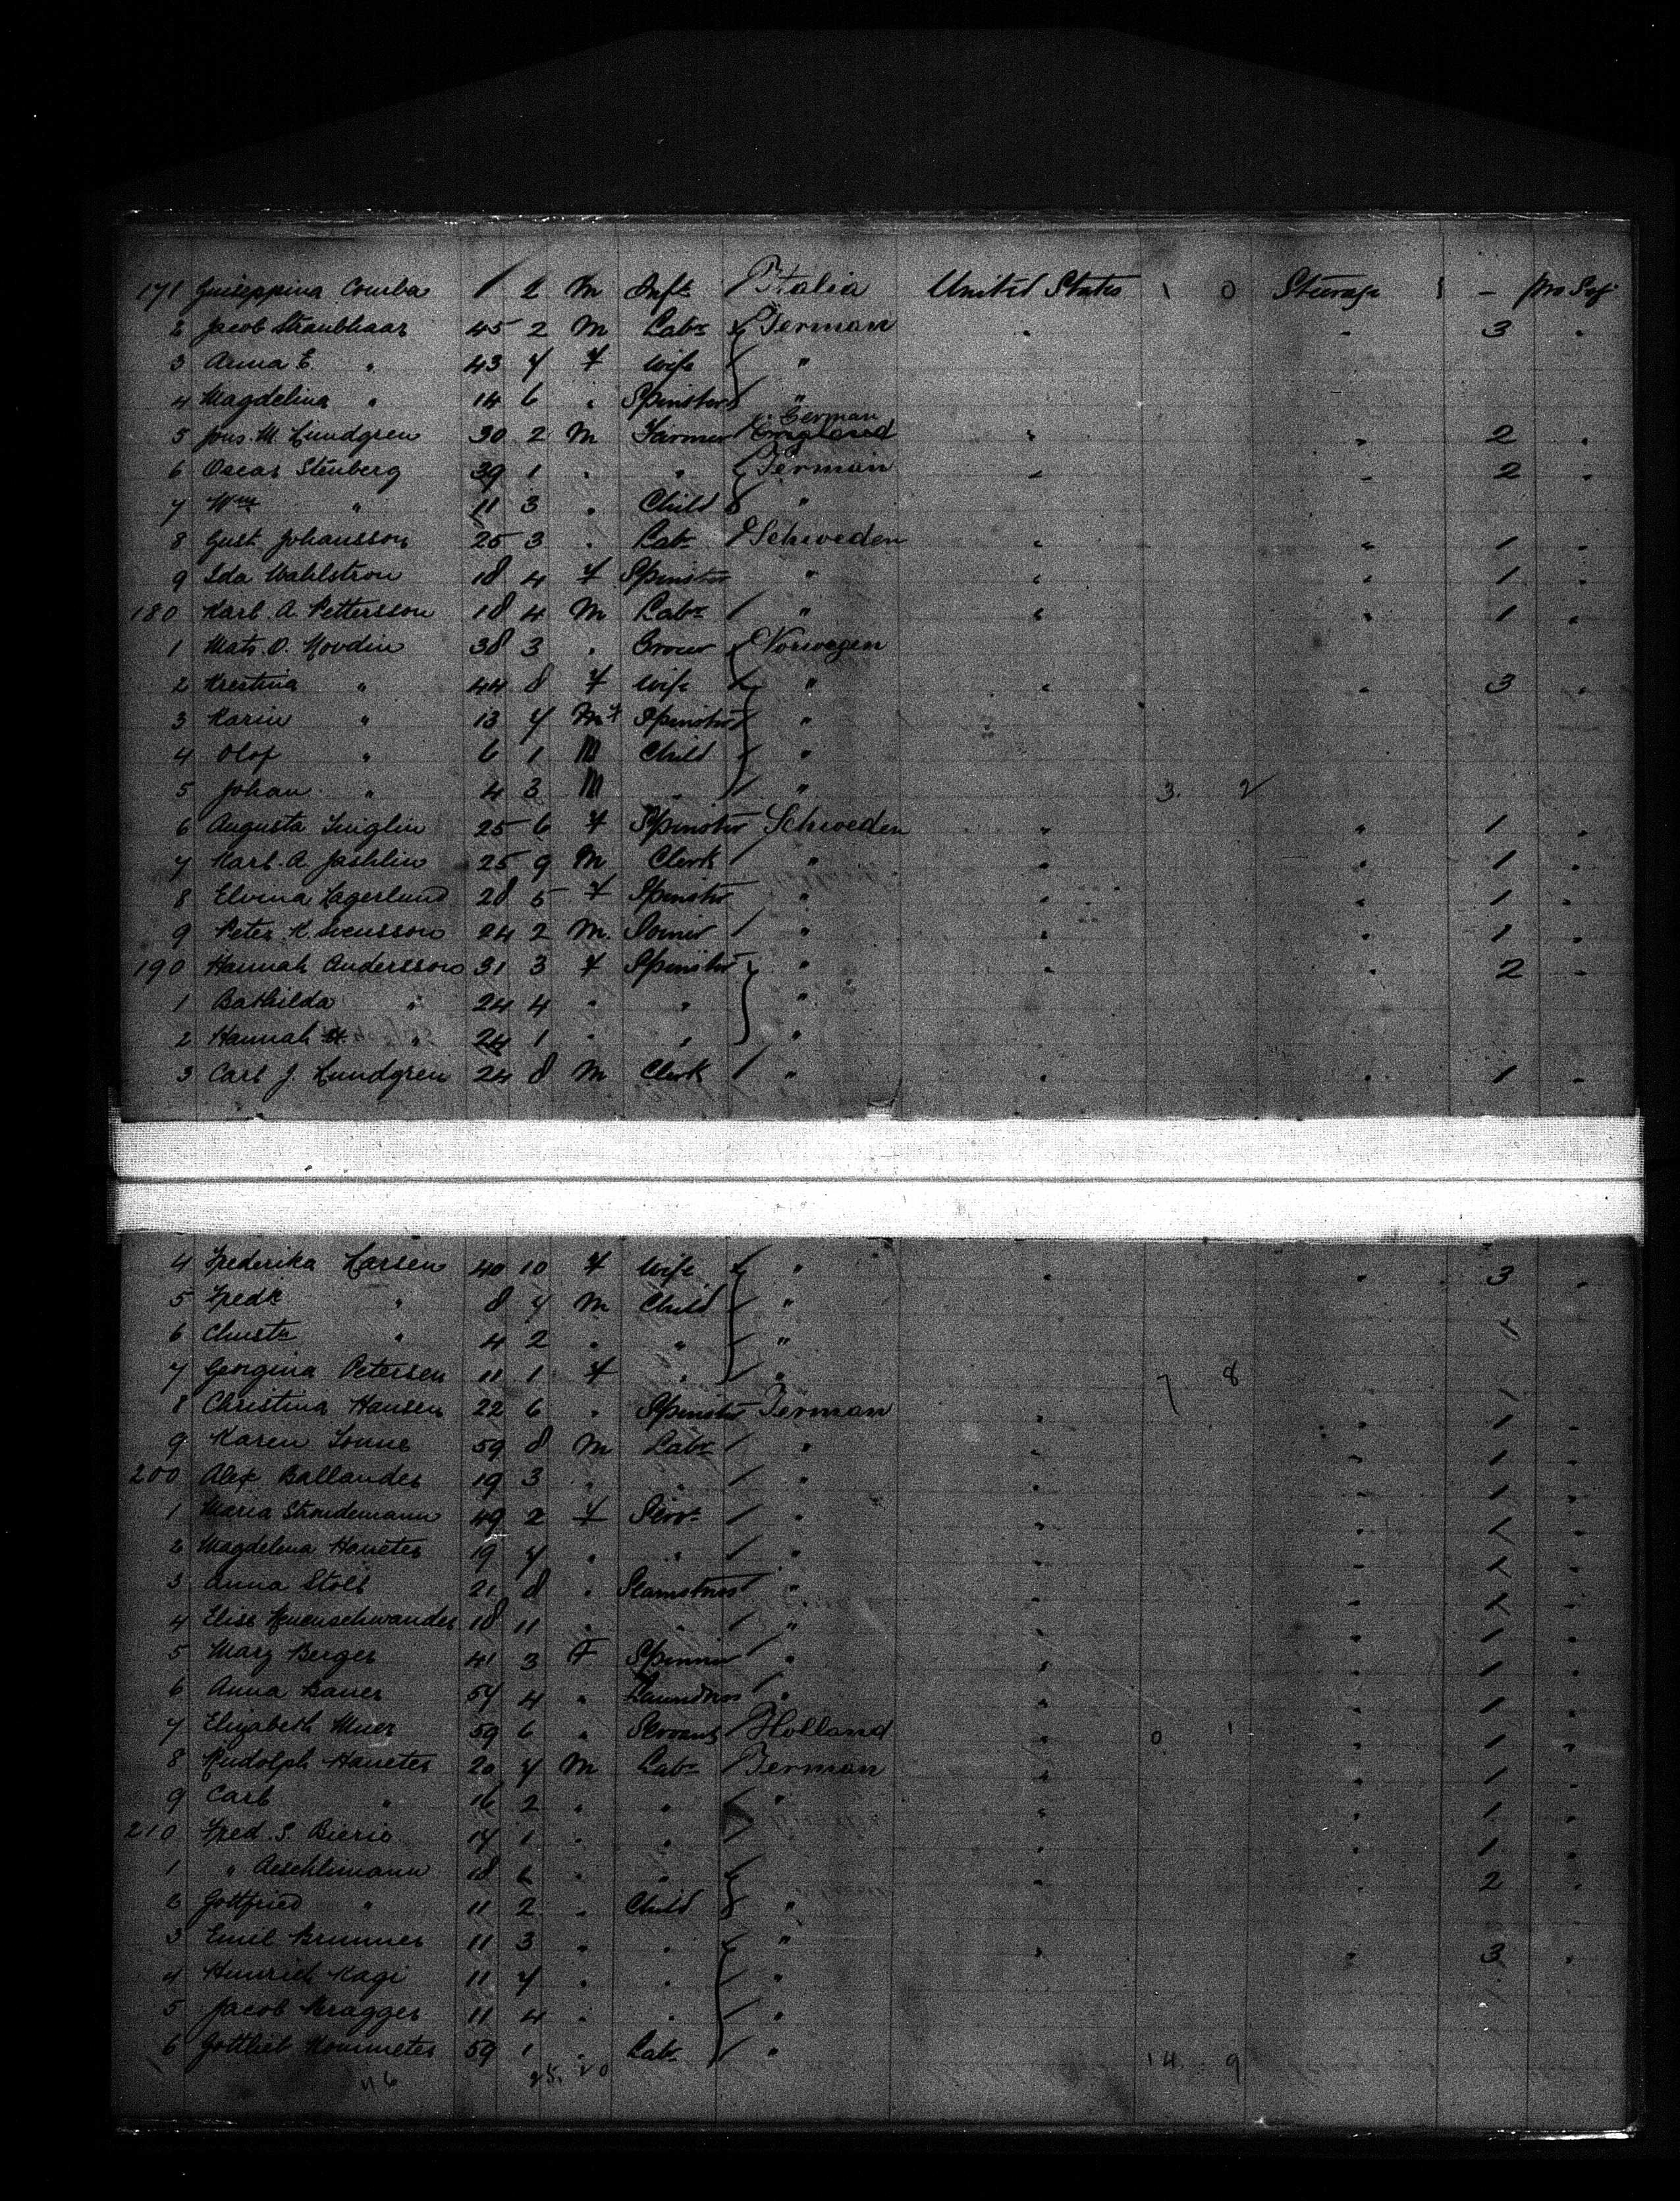 171 Guiseppina Comba 1 2 M Inft / Italia United States 1 0 Steerage 1 - Pro Suj
2 Jacob Straubhaar 45 2 M Labr German " " 3 "
3 Anna E. " 43 7 F Wife "
4 Magdelina " 14 6 " Spinster "
German
5 Jons. M. Lundgren 30 2 M Farmer / England " " 2 "
6 Oscar Stenberg 39 1 " " German " " 2 "
7 Wm " 11 3 " Child "
8 Gust. Johansson 25 3 " Labr / Schweden " " 1 "
9 Ida Wahlstrom 18 4 F Spinster " " " 1 "
180 Karl. A. Pettersson 18 4 M Labr / " " " 1 "
1 Mats. O. Movdin 38 3 " Grocer Norwegen
2 Kristina " 44 8 F Wife " " " 3 "
3 Karin " 13 7 M F Spinster "
4 Olof " 6 1 M Child "
5 Johan " 4 3 M " / " 3. 2
6 Augusta 25 6 F Spinster Schweden " " 1 "
7 Karl. A. 25 9 M Clerk / " " " 1 "
8 Elvina Lagerlund 28 5 F Spinster " " " 1 "
9 Peter. K. Svensson 24 2 M. Joiner / " " " 1 "
190 Hannah Andersson 31 3 F Spinster " " " 2 "
1 Bathilda " 24 4 " " "
2 Hannah " 24 1 " " "
3 Carl J. Lundgren 24 8 M Clerk / " " " 1 "
4 Frederika Larsen 40 10 F Wife " " " 3 "
5 Fredk " 8 7 M Child "
6 Christn " 4 2 " " / "
7 Georgina Petersen 11 1 F " / " 7 8
8 Christina Hansen 22 6 " Spinster German " " 1 "
9 Karen Sonne 59 8 M Labr / " " " 1 "
200 Alex Ballander 19 3 " " / " " " 1 "
1 Maria Stoudemann 49 2 F Servt / " " " 1 "
2 Magdelena Haueter 19 7 " " / " " " 1 "
3 Anna Stoll 21 8 " Seamstress " " " 1 "
4 Elise Neuenschwander 18 11 " " / " " " 1 "
5 Mary Berger 41 3 F Spinner / " " " 1 "
6 Anna Bauer 57 4 " Laundress / " " " 1 "
7 Elizabeth 59 6 " Servant / Holland " 0 1 " 1 "
8 Rudolph Haueter 20 7 M Labr / German " " 1 "
9 Carl " 16 2 " " / " " " 1 "
210 Fred. S. Bieri 17 1 " " / " " 1 "
1 " Aeschlimann 18 6 " " " " 2 "
2 Gottfried " 11 2 " Child "
3 Emil Brunner 11 3 " " " " " 3 "
4 Heinrich Kagi 11 7 " " / "
5 Jacob Bragger 11 4 " " / "
6 Gottlieb 59 1 " Labr / " 14. 9
46 25. 20